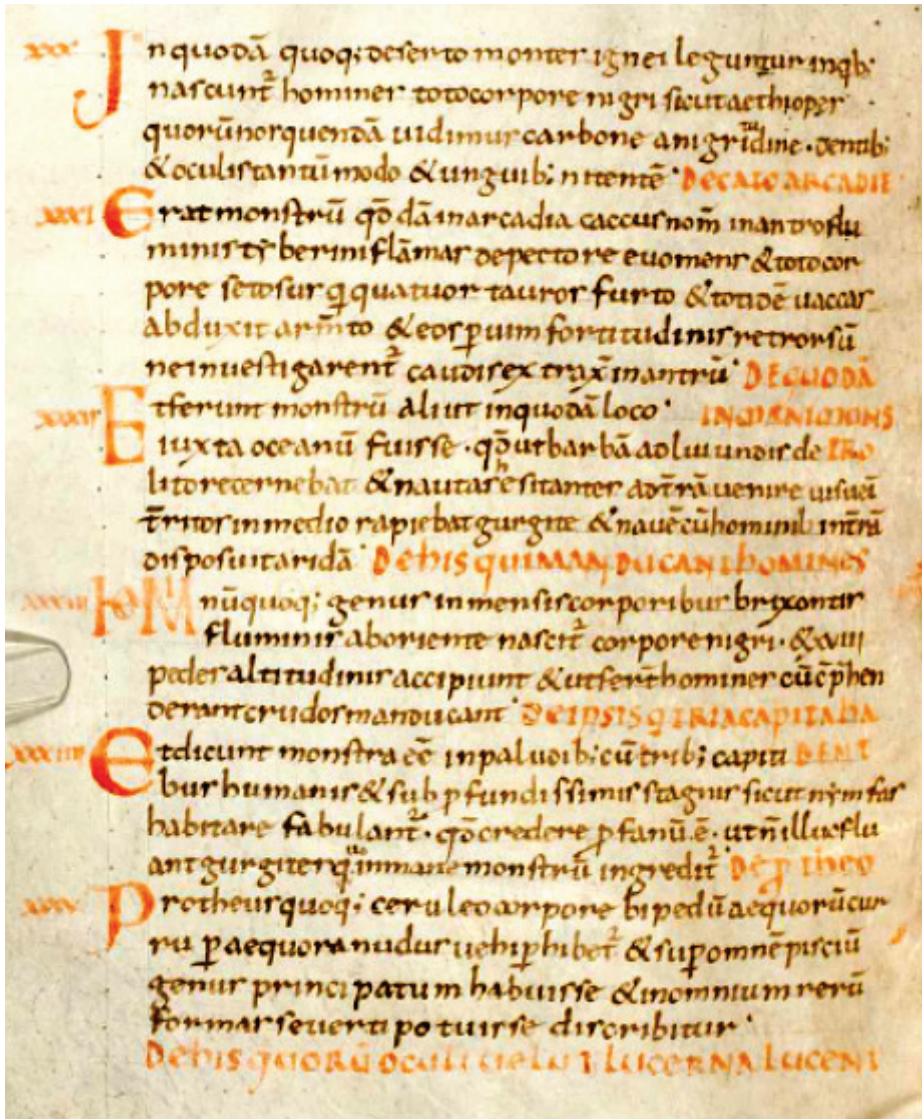 xxx In quodā quoq; deserto montes ignei leguntur inqb;
nascunt̄ homines toto corpore nigri sicut aethiopes
quorū nos quendā uidimus carbone a nigritudine · dentib;
& oculis tantū modo & unguib; nitentē · DE CACO ARCADIE
xxxi Erat monstrū qđdā in arcadia caccus nom̄ in antro flu
minis tyberini flāmas de pectore euomens & toto cor
pore setosus q quatuor tauros furto & totidē uaccas
abduxit arm̄to & eos p̄ uim fortitudinis retrorsū
ne inuestigarent̄ caudis extrax̄ in antrū · DE QUODĀ
xxxii Et ferunt monstrū aliut in quodā loco · INMANI MONS
iuxta oceanū fuisse · qđ ut barbā adlui undis de TRO
litore cernebat & nautas hesitanter ad t̄rā uenire uisu ei
t̄ritos in medio rapiebat gurgite & nauē cū hominib in t̄rā
disposuit aridā · DE HIS QUI MANDUCANT HOMINES
xxxiii HOMinū quoq; genus inmensis corporibus brixontis
fluminis ab oriente nascit̄ corpore nigri · & xviii
pedes altitudinis accipiunt & ut fer̄t homines cū cp̄hen
derant crudos manducant · DE IPSIS Q TRIA CAPITA HA
xxxiiii Et dicunt monstra eē in paludib; cū trib; capiti BENT
bus humanis & sub p̄fundissimis stagnis sicut nymfas
habitare fabulant̄ · qđ credere p̄fanū ē · ut n̄ illuc flu
ant gurgites quo inmane monstrū ingredit̄ DE PROTHEO
xxxv Protheus quoq; ceruleo corpore bipedū aequorū cur
ru p̄ aequora nudus uehi p̄hibet̄ & sup̄ omnē pisciū
genus principatum habuisse & in omnium rerū
formas se uerti potuisse discribitur ·
DE HIS QUORŪ OCULI UELUT LUCERNA LUCENT